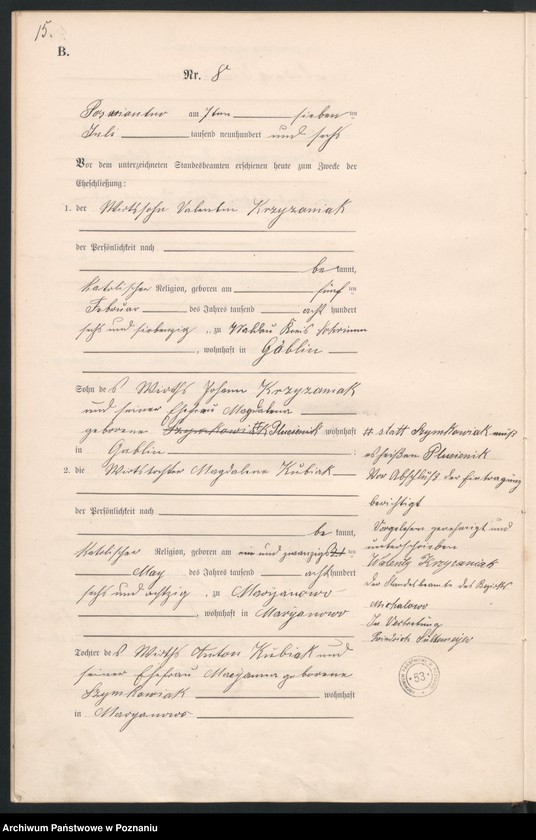 15.
B.
Nr. 8
am 7ten sieben ten
Juli tausend neunhundert und sechs
Vor dem unterzeichneten Standesbeamten erschienen heute zum Zwecke der
Eheschließung:
1. der Wirtssohn Valentin Krzyzaniak
der Persönlichkeit nach
be kannt,
katolischer Religion, geboren am fünf ten
Februar des Jahres tausend acht hundert
sechs und siebenzig, zu Kreis Schrimm
, wohnhaft in Gablin
Sohn des Wirths Johann Krzyzaniak
und seiner Ehefrau Magdalena
geborene Szymkowiak Plucienik wohnhaft
in Gablin
2. die Wirtstochter Magdalene Kubiak
der Persönlichkeit nach
be kannt,
katolischer Religion, geboren am ein und zwanzigst ten
May des Jahres tausend acht hundert
sechs und achtzig, zu Maryanowo
, wohnhaft in Maryanowo
Tochter des Wirths Anton Kubiak und
seiner Ehefrau Maryanna geborene
Szymkowiak wohnhaft
in Maryanowo
statt Szymkowiak muß
es heißen Plucienik
Vor Abschluß der Eintragung
berichtigt
Vorgelesen genehmigt und
unterschrieben
Walenty Krzyzaniak
Der Standesbeamte des Bezirks
In Vertretung
Friedrich
53
Archiwum Państwowe w Poznaniu